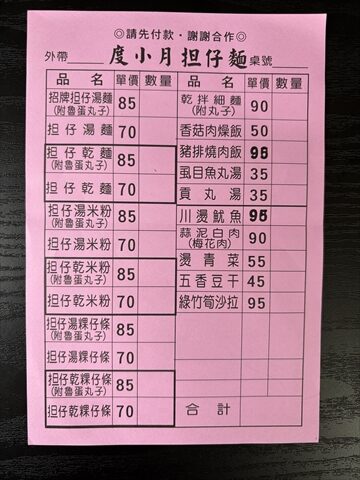 ◎請先付款・謝謝合作◎
外帶 度小月担仔麵 桌號
品名 單價 數量
招牌担仔湯麵 (附魯蛋丸子) 85
担仔湯麵 70
担仔乾麵 (附魯蛋丸子) 85
担仔乾麵 70
担仔湯米粉 (附魯蛋丸子) 85
担仔湯米粉 70
担仔乾米粉 (附魯蛋丸子) 85
担仔乾米粉 70
担仔湯粿仔條 (附魯蛋丸子) 85
担仔湯粿仔條 70
担仔乾粿仔條 (附魯蛋丸子) 85
担仔乾粿仔條 70
品名 單價 數量
乾拌細麵 (附丸子) 90
香菇肉燥飯 50
豬排燒肉飯 95
虱目魚丸湯 35
貢丸湯 35
川燙魷魚 95
蒜泥白肉 (梅花肉) 90
燙青菜 55
五香豆干 45
綠竹筍沙拉 95
合計